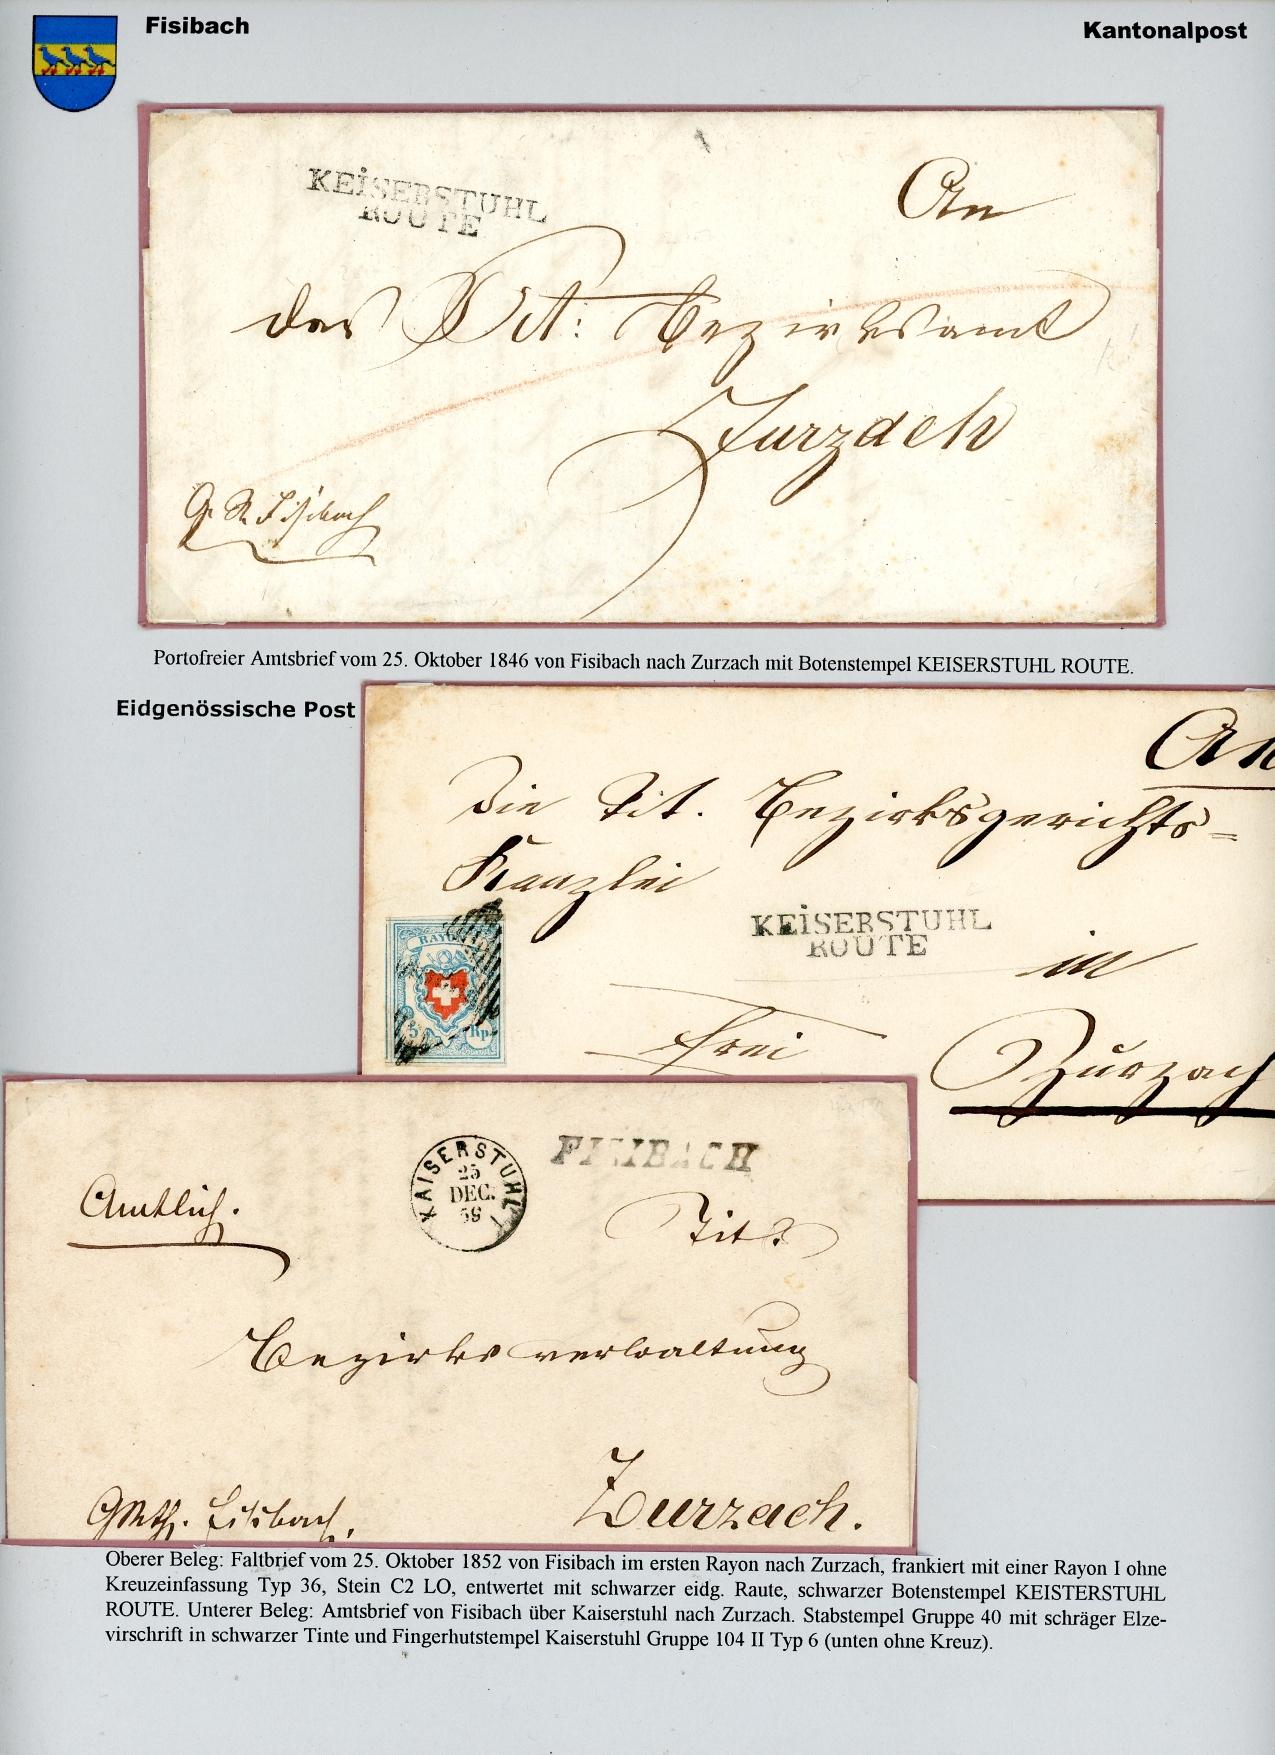 Fisibach
Kantonalpost
KEiSERSTUHL
ROUTE
An
das Tit: Bezirksamt
Zurzach
G. R. Fisibach
Portofreier Amtsbrief vom 25. Oktober 1846 von Fisibach nach Zurzach mit Botenstempel KEISERSTUHL ROUTE.
Eidgenössische Post
An
Die Tit. Bezirksgerichts=
Kanzlei
KEiSERSTUHL
ROUTE
in
RAYON
5 Rp.
frei
Zurzach
KAISERSTUHL
25
DEC.
59
FISIBACH
Amtlich.
Tit.
Bezirksverwaltung
Zurzach.
Fisibach.
Oberer Beleg: Faltbrief vom 25. Oktober 1852 von Fisibach im ersten Rayon nach Zurzach, frankiert mit einer Rayon I ohne
Kreuzeinfassung Typ 36, Stein C2 LO, entwertet mit schwarzer eidg. Raute, schwarzer Botenstempel KEISTERSTUHL
ROUTE. Unterer Beleg: Amtsbrief von Fisibach über Kaiserstuhl nach Zurzach. Stabstempel Gruppe 40 mit schräger Elze-
virschrift in schwarzer Tinte und Fingerhutstempel Kaiserstuhl Gruppe 104 II Typ 6 (unten ohne Kreuz).